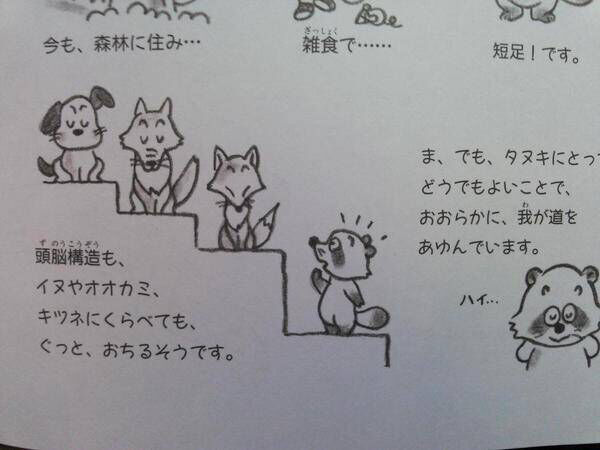 今も、森林に住み…
雑食で……
短足！です。
頭脳構造も、
イヌやオオカミ、
キツネにくらべても、
ぐっと、おちるそうです。
ま、でも、タヌキにとって
どうでもよいことで、
おおらかに、我が道を
あゆんでいます。
ハイ…